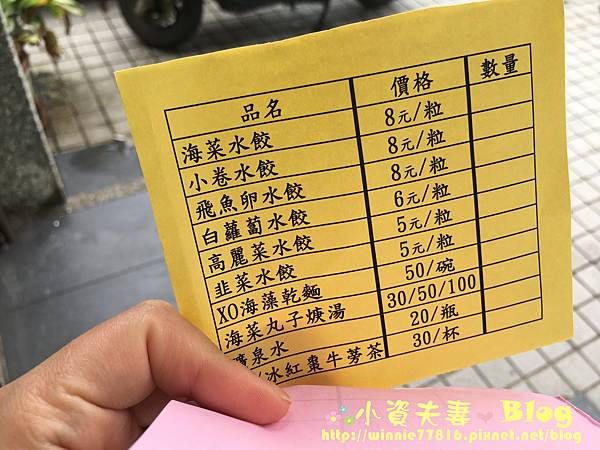 品名 價格 數量
海菜水餃 8元/粒
小卷水餃 8元/粒
飛魚卵水餃 8元/粒
白蘿蔔水餃 6元/粒
高麗菜水餃 5元/粒
韭菜水餃 5元/粒
XO海藻乾麵 50/碗
海菜丸子焿湯 30/50/100
礦泉水 20/瓶
/冰紅棗牛蒡茶 30/杯
小資夫妻 Blog
http://winnie77816.pixnet.net/blog